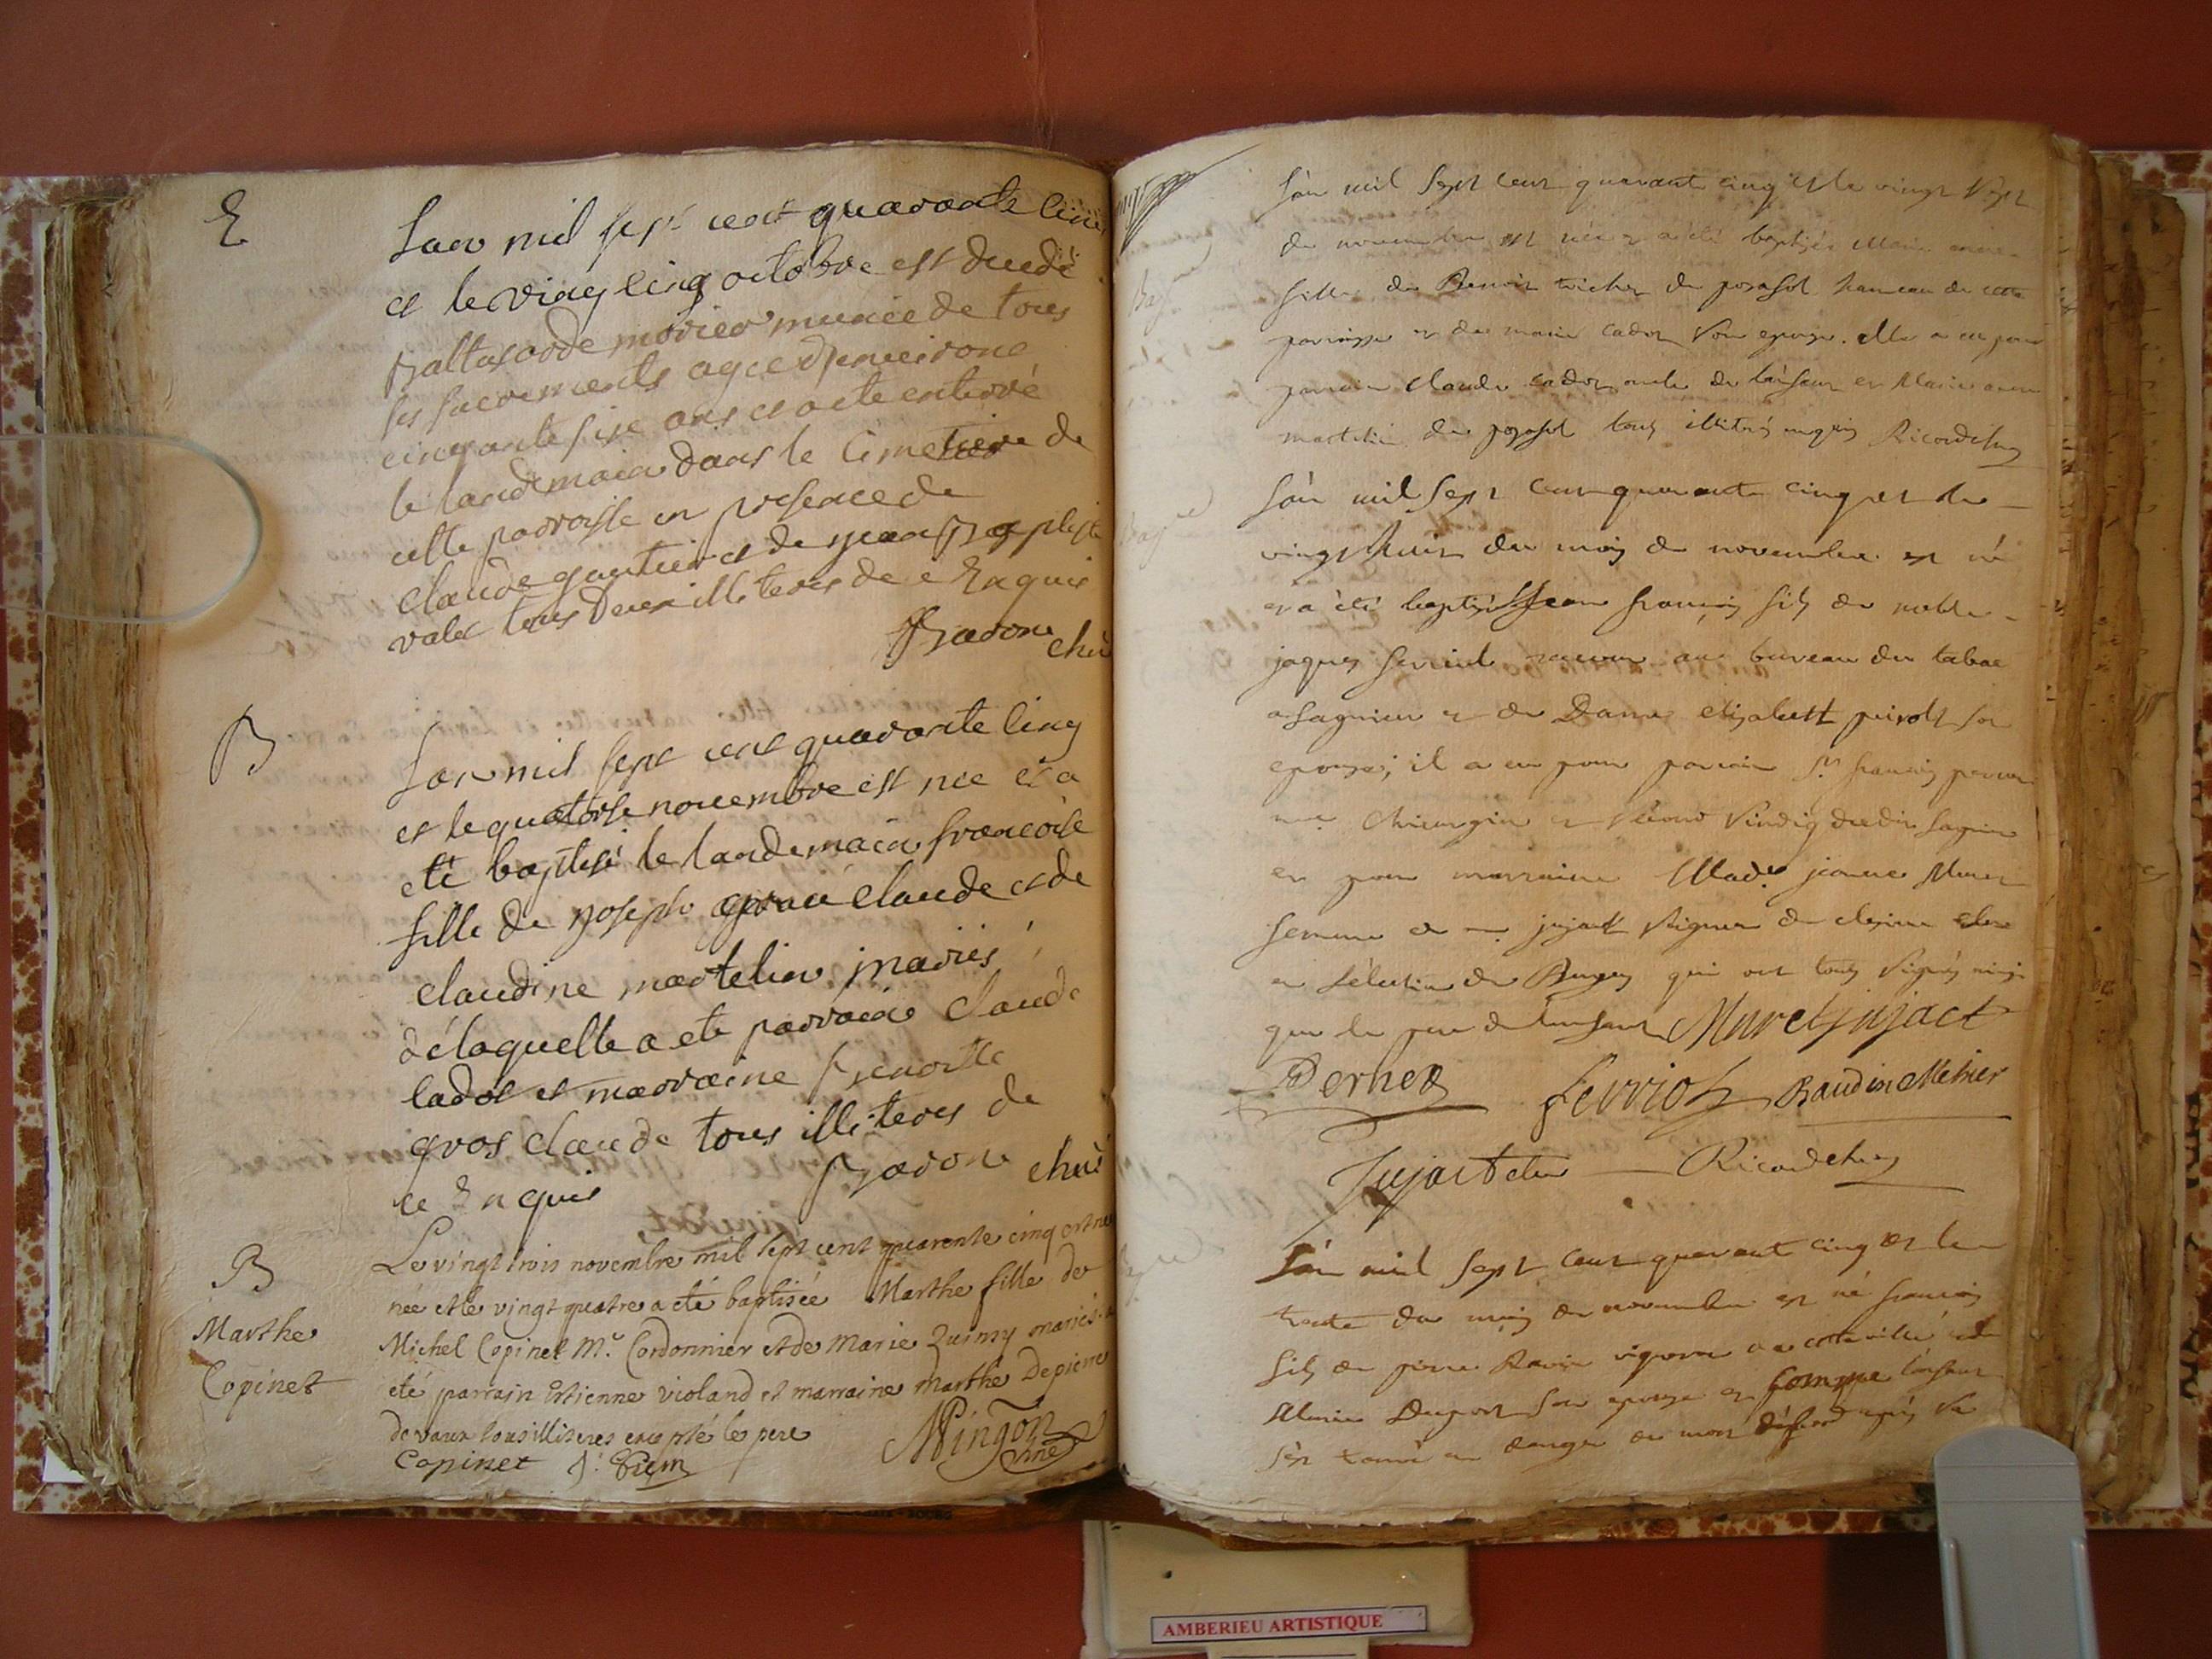 E
Lan mil sept cent quarante cinq
et le ving cinq octobre est decedé
Baltasarde morier munie de tous
ses sacrements agee d'environe
cinquante sixe ans et a ete enterré
le landemain dans le cimetiere de
cette parroisse en presence de
claude gautier et de jean Baptiste
valet tous deux illiteres de ce Enquis
Barone
B
Lan mil sept cent quarante cinq
et le quatorse novembre est nee et a
eté baptisé le landemain francoise
fille de joseph gros claude et de
claudine martelin mariés
de laquelle a ete parrain claude
cadot et marraine
gros claude tous illiteres de
ce Enquis Barone
B
Marthe
Copinet
Le vingt trois novembre mil sept cent quarente cinq est
née et le vingt quatre a eté baptisée Marthe fille de
Michel Copinet Me. Cordonnier et de Marie Quinsy mariés. a
eté parrain Estienne violand et marraine Marthe Depierre
devaux tous illiteres excepté le pere
Copinet Mingon
L'an mil sept cent quarante cinq et le vingt sept
de novembre est née et a été baptisée Marie
fille de Benoit trichon de hameau de cette
parroisse et de marie cador son epouse. elle a eu pour
parrain claude cador oncle de l'enfant et Marie
martelin de tous illitérés enquis Ricard
L'an mil sept cent quarante cinq et le
vingt huit du mois de novembre est né
et a été baptisé Jean françois fils de noble
jaques ferriol receveur au bureau du tabac
a lagnieu et de Dame elizabeth son
epouse; il a eu pour parrain Sr. françois
chirurgien et second sindic dudit lagnieu
et pour marraine Made. jeanne Muret
femme de jujact
en l'élection de Bugey qui ont tous signés ainsi
que le pere de l'enfant Muret jujact
Perner Ferrioz Baudin
Jujact Ricard
L'an mil sept cent quarante cinq et le
trente du mois de novembre est né françois
fils de pierre Ravier vigneron de cette ville et de
Marie Dupont son epouse et comme l'enfant
s'est trouvé en danger de mort
AMBERIEU ARTISTIQUE